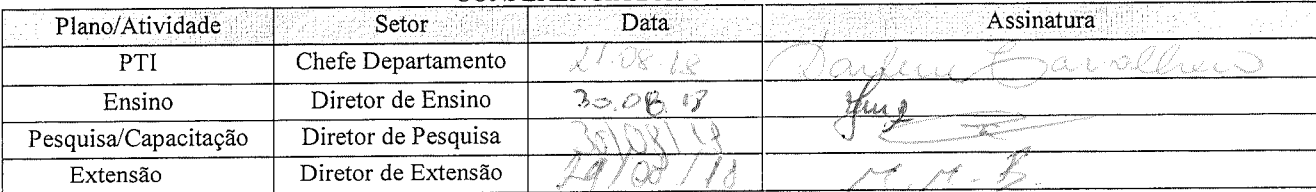 Plano/Atividade Setor Data Assinatura
PTI Chefe Departamento 21.08.18 Darlene Carvalheiro
Ensino Diretor de Ensino 30.08.18
Pesquisa/Capacitação Diretor de Pesquisa 30/08/18
Extensão Diretor de Extensão 29/08/18 M.M.B